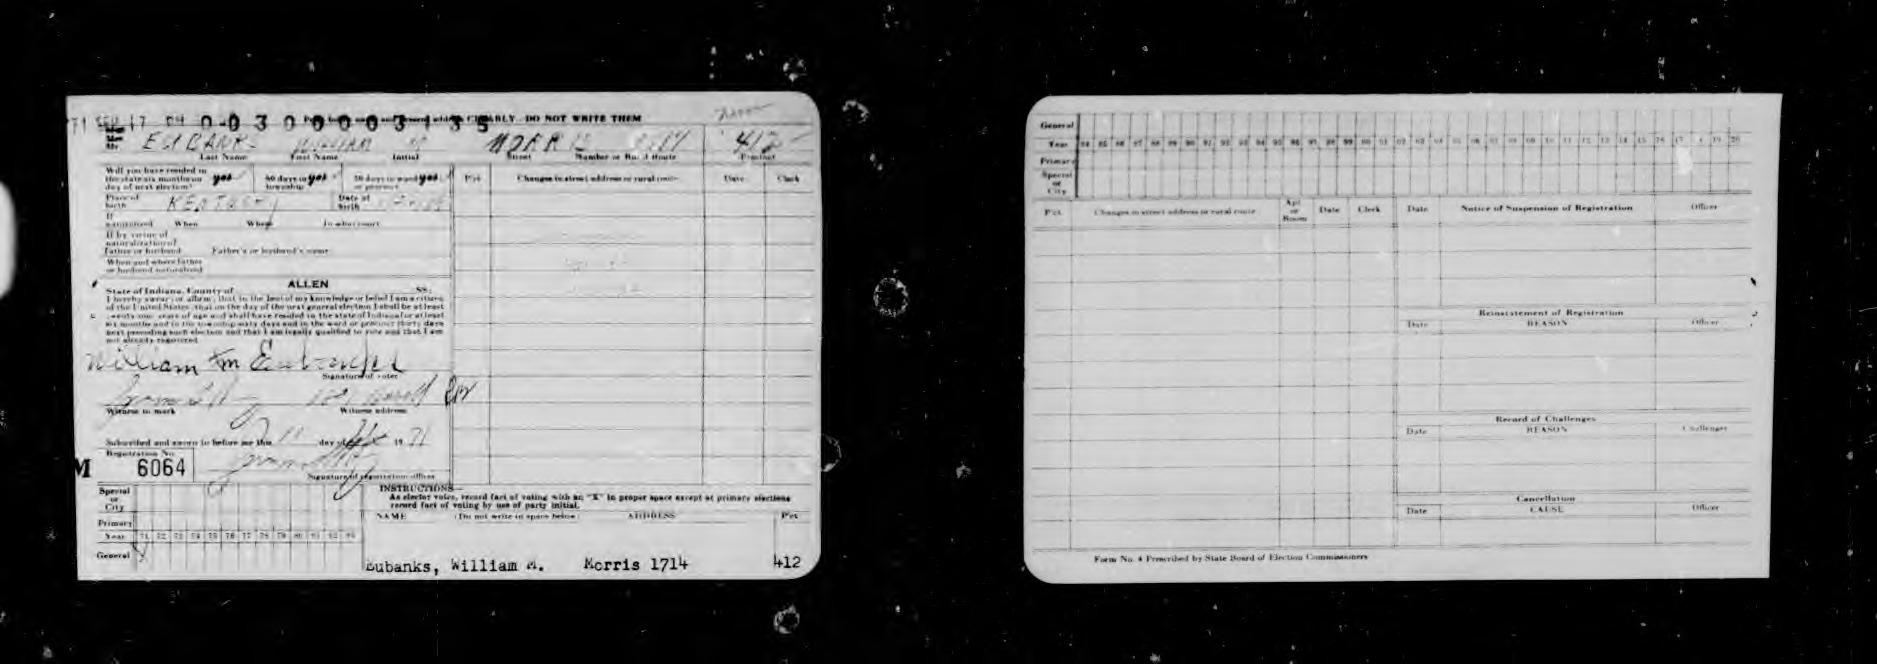 71 SEP 17 0-0300003135
CLEARLY - DO NOT WRITE THEM
Mr. EUBANKS WILLIAM M MORRIS 1714 412
Last Name First Name Initial Street Number or Rural Route Precinct
Will you have resided in
the state six months on yes 60 days in yes 30 days in ward yes Pct. Changes in street address or rural route Date Clerk
day of next election? township or precinct
Place of Date of
birth KENTUCKY birth
If
naturalized When Where In what court
If by virtue of
naturalization of
father or husband Father's or husband's name
When and where father
or husband naturalized
State of Indiana, County of ALLEN SS:
I hereby swear, or affirm, that to the best of my knowledge or belief I am a citizen
of the United States, that on the day of the next general election I shall be at least
twenty one years of age and shall have resided in the state of Indiana for at least
six months and in the township sixty days and in the ward or precinct thirty days
next preceding such election and that I am legally qualified to vote and that I am
not already registered.
William M Eubanks
Signature of voter
Witness to mark Witness address
Subscribed and sworn to before me this day of 19 71
Registration No.
M 6064
Signature of registration officer
Special
or
City
Primary
Year 71 72 73 74 75 76 77 78 79 80 81 82 83
General
INSTRUCTIONS—
As elector votes, record fact of voting with an "X" in proper space except at primary elections
record fact of voting by use of party initial.
NAME (Do not write in space below) ADDRESS Pct.
Eubanks, William M. Morris 1714 412
General
Year 84 85 86 87 88 89 90 91 92 93 94 95 96 97 98 99 00 01 02 03 04 05 06 07 08 09 10 11 12 13 14 15 16 17 18 19 20
Primary
Special
or
City
Pct. Changes in street address or rural route Apt. or Room Date Clerk Date Notice of Suspension of Registration Officer
Reinstatement of Registration
Date REASON Officer
Record of Challenges
Date REASON Challenger
Cancellation
Date CAUSE Officer
Form No. 4 Prescribed by State Board of Election Commissioners